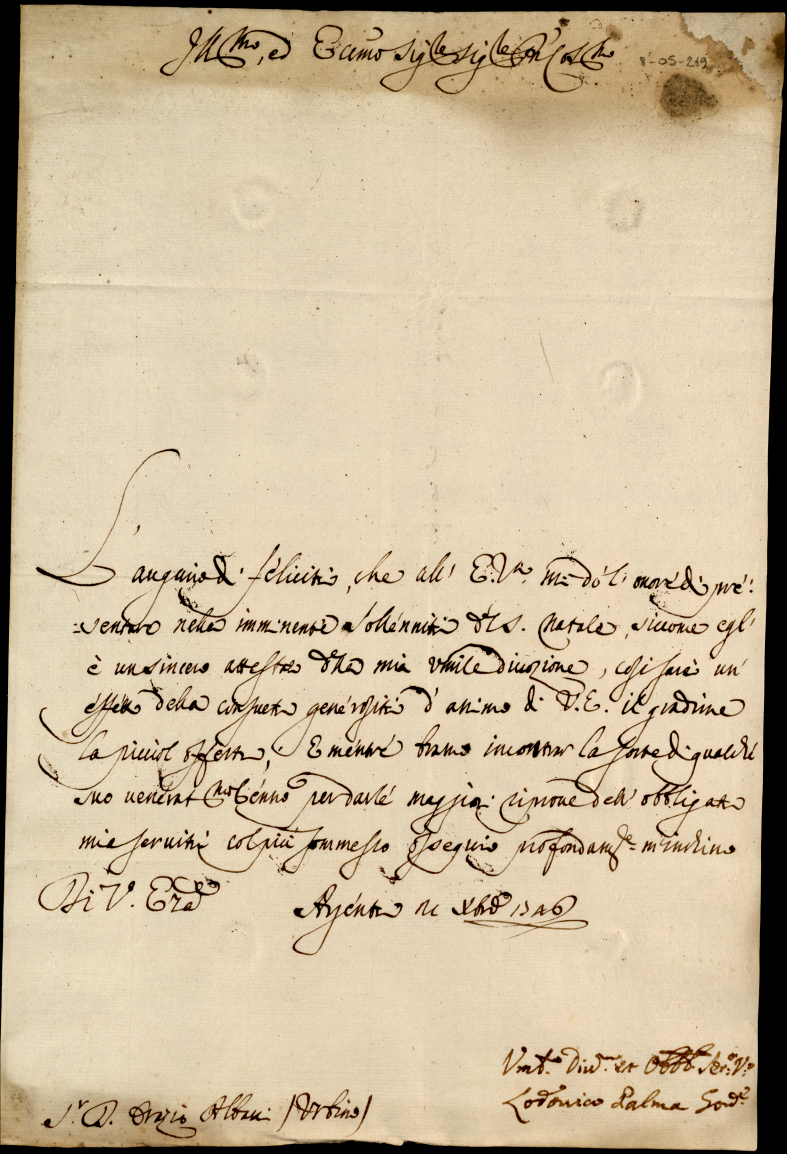 Ill.mo, ed Eccmo Sig.re Sig.re P.n Col.mo
8-05-219
L'augurio di felicità, che all' E.V.ra mi dó l'onore di pre:
=sentare nella imminente Sollennità del S. Natale, siccome egl'
è un sincero attesto della mia Umile divozione, cosi sarà un'
effetto della consueta generosità d'animo di V.E. il gradirne
la picciol offerta; E mentre bramo incontrar la sorte di qualche
suo venerat.mo Cenno per darle maggiori riprove dell' obbligata
mia servitù col più sommesso ossequio profondam.te m'inchino
Di V. Ecc.za
Ajente
Xbre
Um.o Div.o et Obb.o Ser.e V.o
Lodovico Palma
S.r D. Orazio Albani (Urbino)